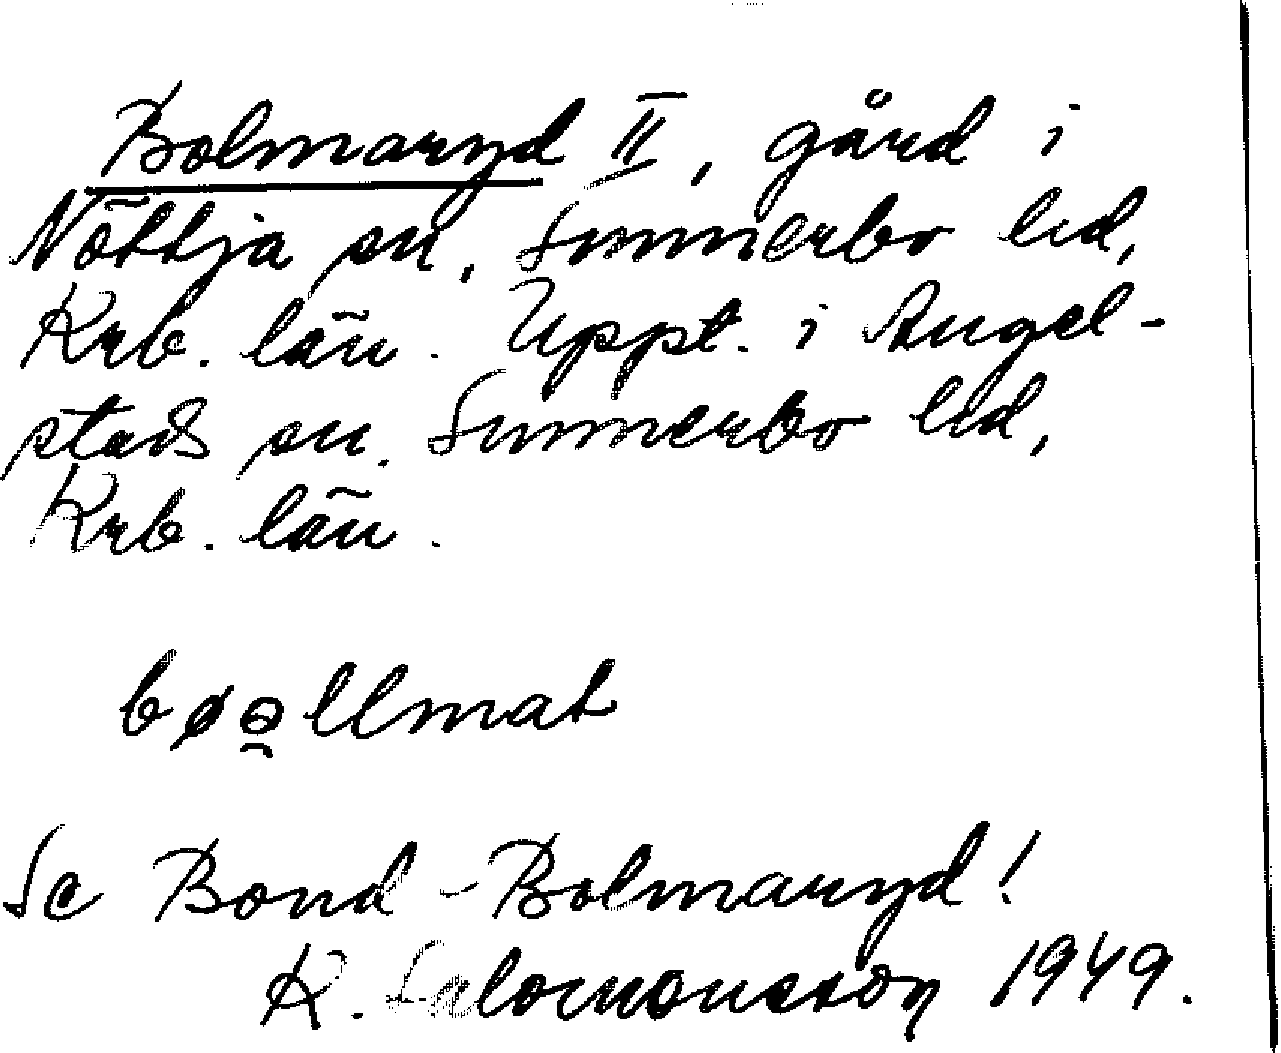 Bolmaryd II, gård i
Nöttja sn, Sunnerbo hd,
Krb. län. Uppt. i Angel-
stads sn. Sunnerbo hd,
Krb. län.
bøə̯llmat
Se Bond-Bolmaryd!
K. Salomonsson 1949.